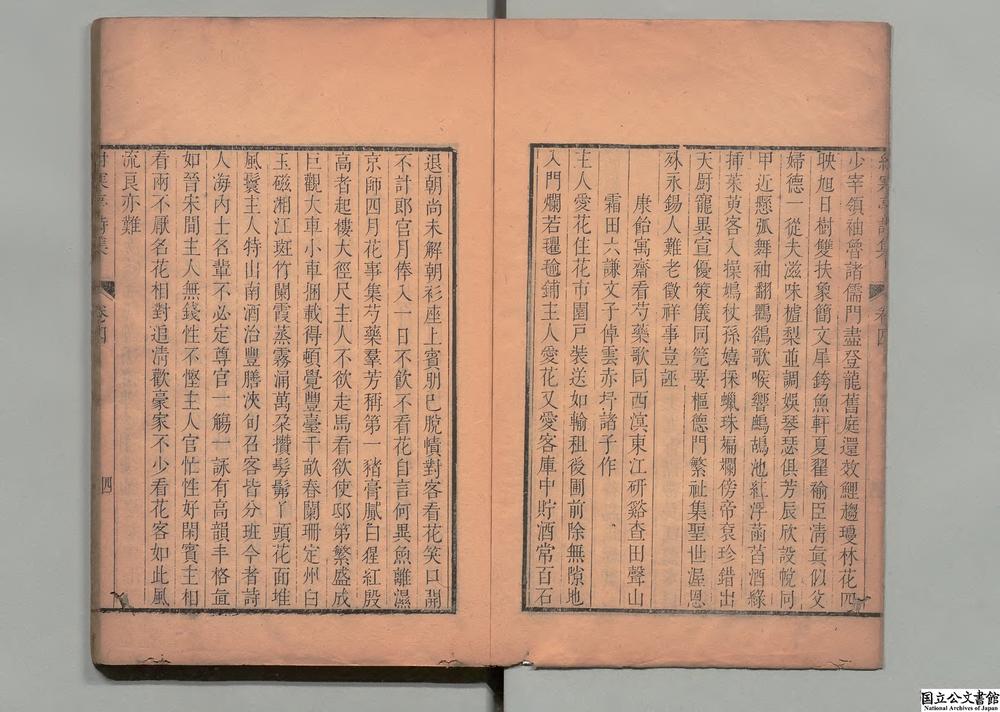 少宰領袖曾諸儒門盡登龍舊庭還效鯉趨瓊林花四
映旭日樹雙扶象簡文犀銙魚軒夏翟褕臣清眞似父
婦德一從夫滋味櫨梨並調娛琴瑟俱芳辰欣設帨同
甲近懸弧舞袖翻鸜鵒歌喉響鷓鴣池紅浮菡萏酒綠
揷茱萸客入操鳩杖孫嬉採蠟珠褊斕傍帝袞珍錯出
天廚寵異宣優策儀同筦要樞德門繁祉集聖世渥恩
殊永錫人難老徵祥事豈誣
康飴寓齋看芍藥歌同西溟東江研谿查田聲山
霜田六謙文子倬雲赤抒諸子作
主人愛花住花市園戸裝送如輸租後圃前除無隙地
入門爛若㲮毺鋪主人愛花又愛客庫中貯酒常百石
退朝尚未解朝衫座上賓朋已脫幘對客看花笑口開
不計郎官月俸入一日不飮不看花自言何異魚離濕
京師四月花事集芍藥羣芳稱第一猪膏膩白猩紅殷
高者起樓大徑尺主人不欲走馬看欲使邸第繁盛成
巨觀大車小車捆載得頓覺豐臺千畝春闌珊定州白
玉磁湘江斑竹闌霞蒸霧涌萬朶攢髣髴丫頭花面堆
風鬟主人特山南酒治豐膳浹旬召客皆分班今者詩
人海內士名輩不必定尊官一觴一詠有高韻丰格宜
如晉宋間主人無錢性不慳主人官忙性好閑賓主相
看兩不厭名花相對追淸歡豪家不少看花客如此風
流良亦難
寒亭詩集
卷四
四
国立公文書館
National Archives of Japan